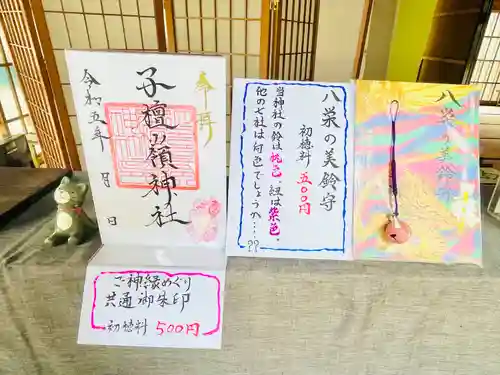 奉拝
子檀嶺神社
令和五年 月 日
ご神縁めぐり
共通御朱印
初穂料 500円
八栄の美鈴守
初穂料 五〇〇円
当神社の鈴は桃色 紐は紫色
他の七社は何色でしょうか…??
八栄の美鈴守